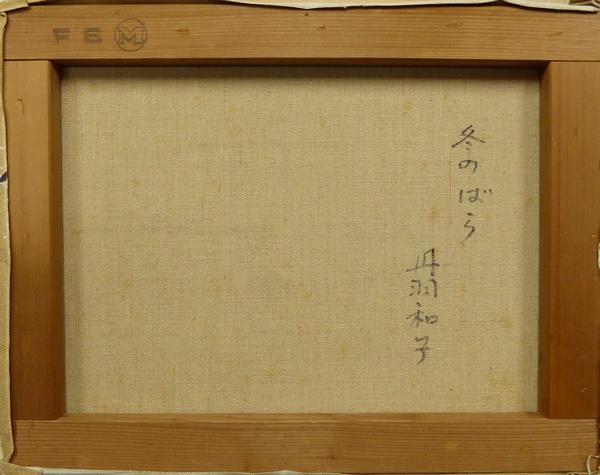 F6 M
冬のばら
丹羽和子